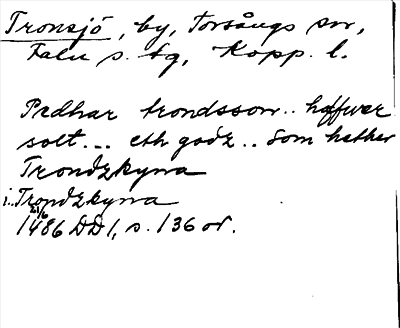 Tronsjö, by, Torsångs sn,
Falu s. tg, Kopp. l.
Pædhar trondsson.. haffwer
solt... eth godz.. som hether
Trondzkyrra
i.. Trondzkyrra
21/6
1486 DD 1, s. 136 or.